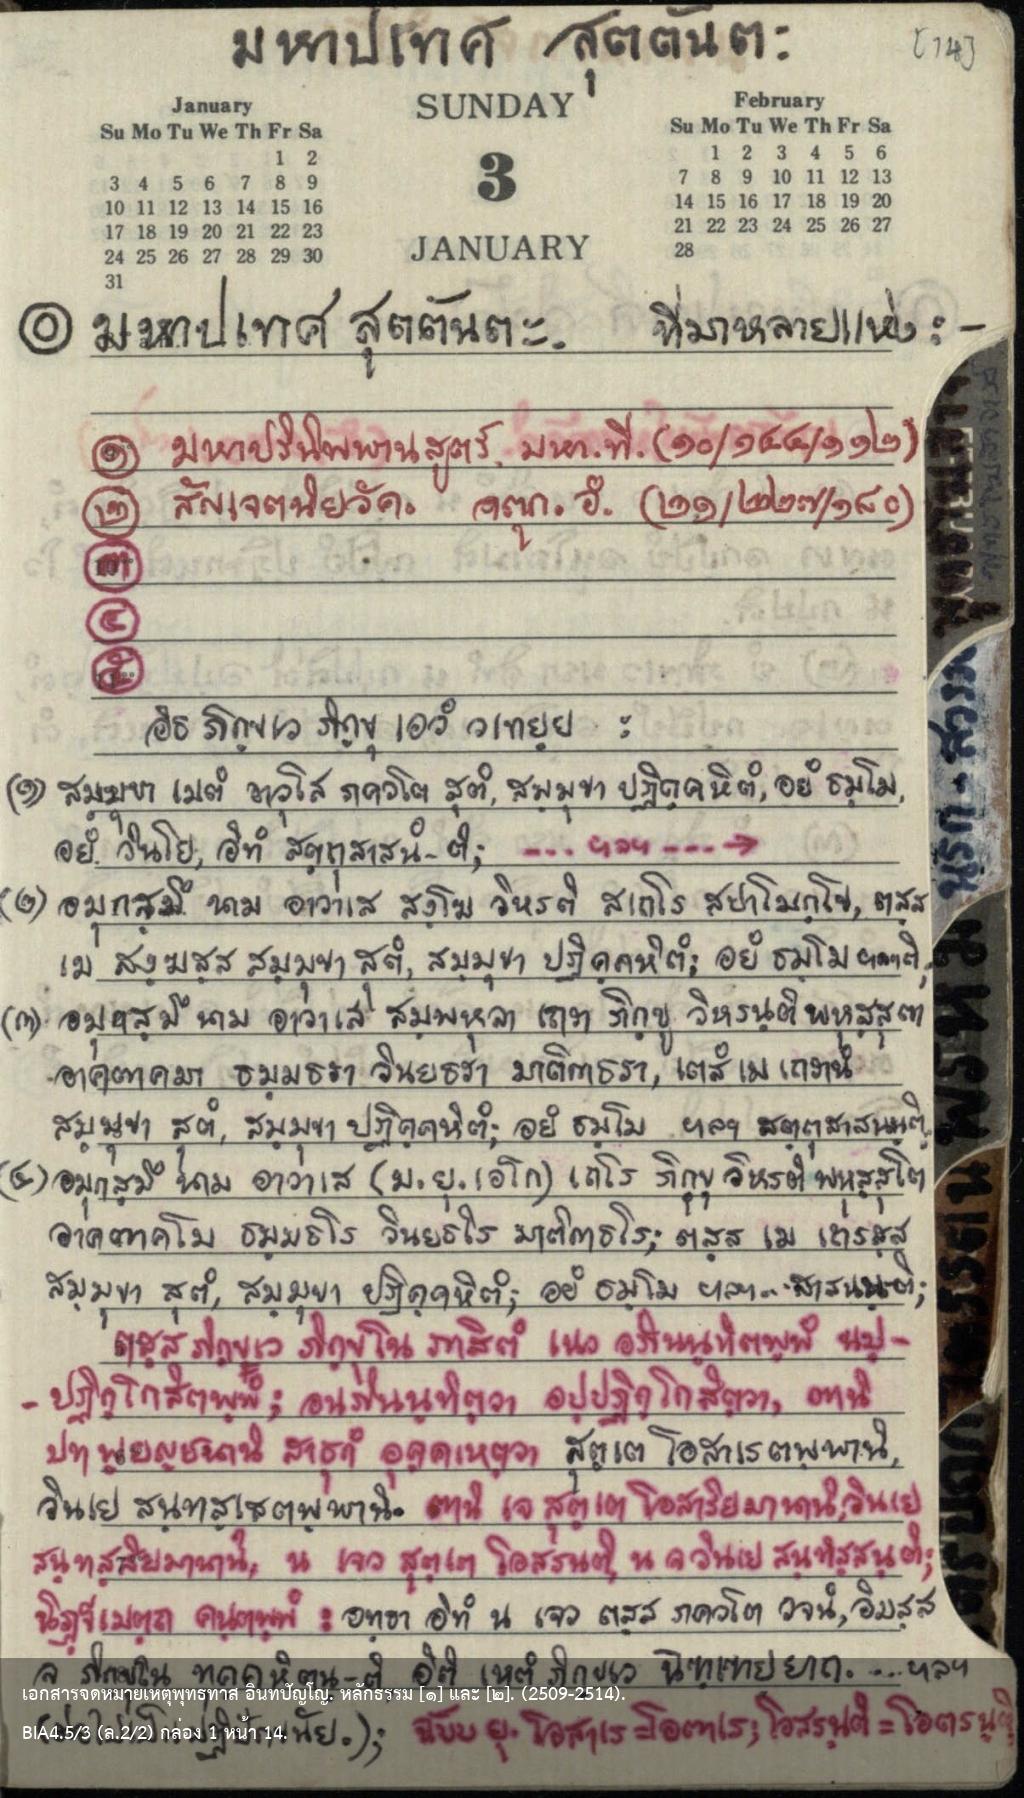 มหาปเทศ สุตตันตะ
[14]
January
Su Mo Tu We Th Fr Sa
1 2
3 4 5 6 7 8 9
10 11 12 13 14 15 16
17 18 19 20 21 22 23
24 25 26 27 28 29 30
31
SUNDAY
3
JANUARY
February
Su Mo Tu We Th Fr Sa
1 2 3 4 5 6
7 8 9 10 11 12 13
14 15 16 17 18 19 20
21 22 23 24 25 26 27
28
มหาปเทศ สุตตันตะ. ที่มาหลายแห่ง :-
๑ มหาปรินิพพานสูตร์. มหา.ที. (๑๐/๑๔๔/๑๑๒)
๒ สัญเจตนิยวัค. จตุก. อํ. (๒๑/๒๒๗/๑๘๐)
๓
๔
๕
อิธ ภิกฺขเว ภิกฺขุ เอวํ วเทยฺย :
(๑) สมฺมุขา เมตํ อาวุโส ภควโต สุตํ, สมฺมุขา ปฏิคฺคหิตํ, อยํ ธมฺโม,
อยํ วินโย, อิทํ สตฺถุสาสนํ-ติ; --- ฯลฯ --->
(๒) อมุกสฺมึ นาม อาวาเส สงฺโฆ วิหรติ สเถโร สปาโมกฺโข, ตสฺส
เม สงฺฆสฺส สมฺมุขา สุตํ, สมฺมุขา ปฏิคฺคหิตํ; อยํ ธมฺโม ฯลฯติ,
(๓) อมุกสฺมึ นาม อาวาเส สมฺพหุลา เถรา ภิกฺขู วิหรนฺติ พหุสฺสุตา
อาคตาคมา ธมฺมธรา วินยธรา มาติกาธรา, เตสํ เม เถรานํ
สมฺมุขา สุตํ, สมฺมุขา ปฏิคฺคหิตํ; อยํ ธมฺโม ฯลฯ สตฺถุสาสนนฺติ,
(๔) อมุกสฺมึ นาม อาวาเส (ม. ยุ. เอโก) เถโร ภิกฺขุ วิหรติ พหุสฺสุโต
อาคตาคโม ธมฺมธโร วินยธโร มาติกาธโร; ตสฺส เม เถรสฺส
สมฺมุขา สุตํ, สมฺมุขา ปฏิคฺคหิตํ; อยํ ธมฺโม ฯลฯ... สาสนนฺ-ติ;
ตสฺส ภิกฺขเว ภิกฺขุโน ภาสิตํ เนว อภินนฺทิตพฺพํ นปฺ-
- ปฏิกฺโกสิตพฺพํ; อนภินนฺทิตฺวา อปฺปฏิกฺโกสิตฺวา, ตานิ
ปท พฺยญฺชนานิ สาธุกํ อุคฺคเหตฺวา สุตฺเต โอสาเรตพฺพานิ,
วินเย สนฺทสฺเสตพฺพานิ. ตานิ เจ สุตฺเต โอสาริยมานานิ, วินเย
สนฺทสฺสิยมานานิ, น เจว สุตฺเต โอสรนฺติ น จ วินเย สนฺทิสฺสนฺติ;
นิฏฺฐเมตฺถ คนฺตพฺพํ : อทฺธา อิทํ น เจว ตสฺส ภควโต วจนํ, อิมสฺส
จ ภิกฺขุโน ทุคฺคหิตนฺ-ติ อิติ เหตํ ภิกฺขเว ฉฑฺเฑยฺยาถ. ...ฯลฯ
ฉบับ ยุ. โอสาเร=โอตาเร; โอสรนฺติ = โอตรนฺติ
เอกสารจดหมายเหตุพุทธทาส อินทปัญโญ. หลักธรรม [๑] และ [๒]. (2509-2514).
BIA4.5/3 (ล.2/2) กล่อง 1 หน้า 14.
นรก - สวรรค์